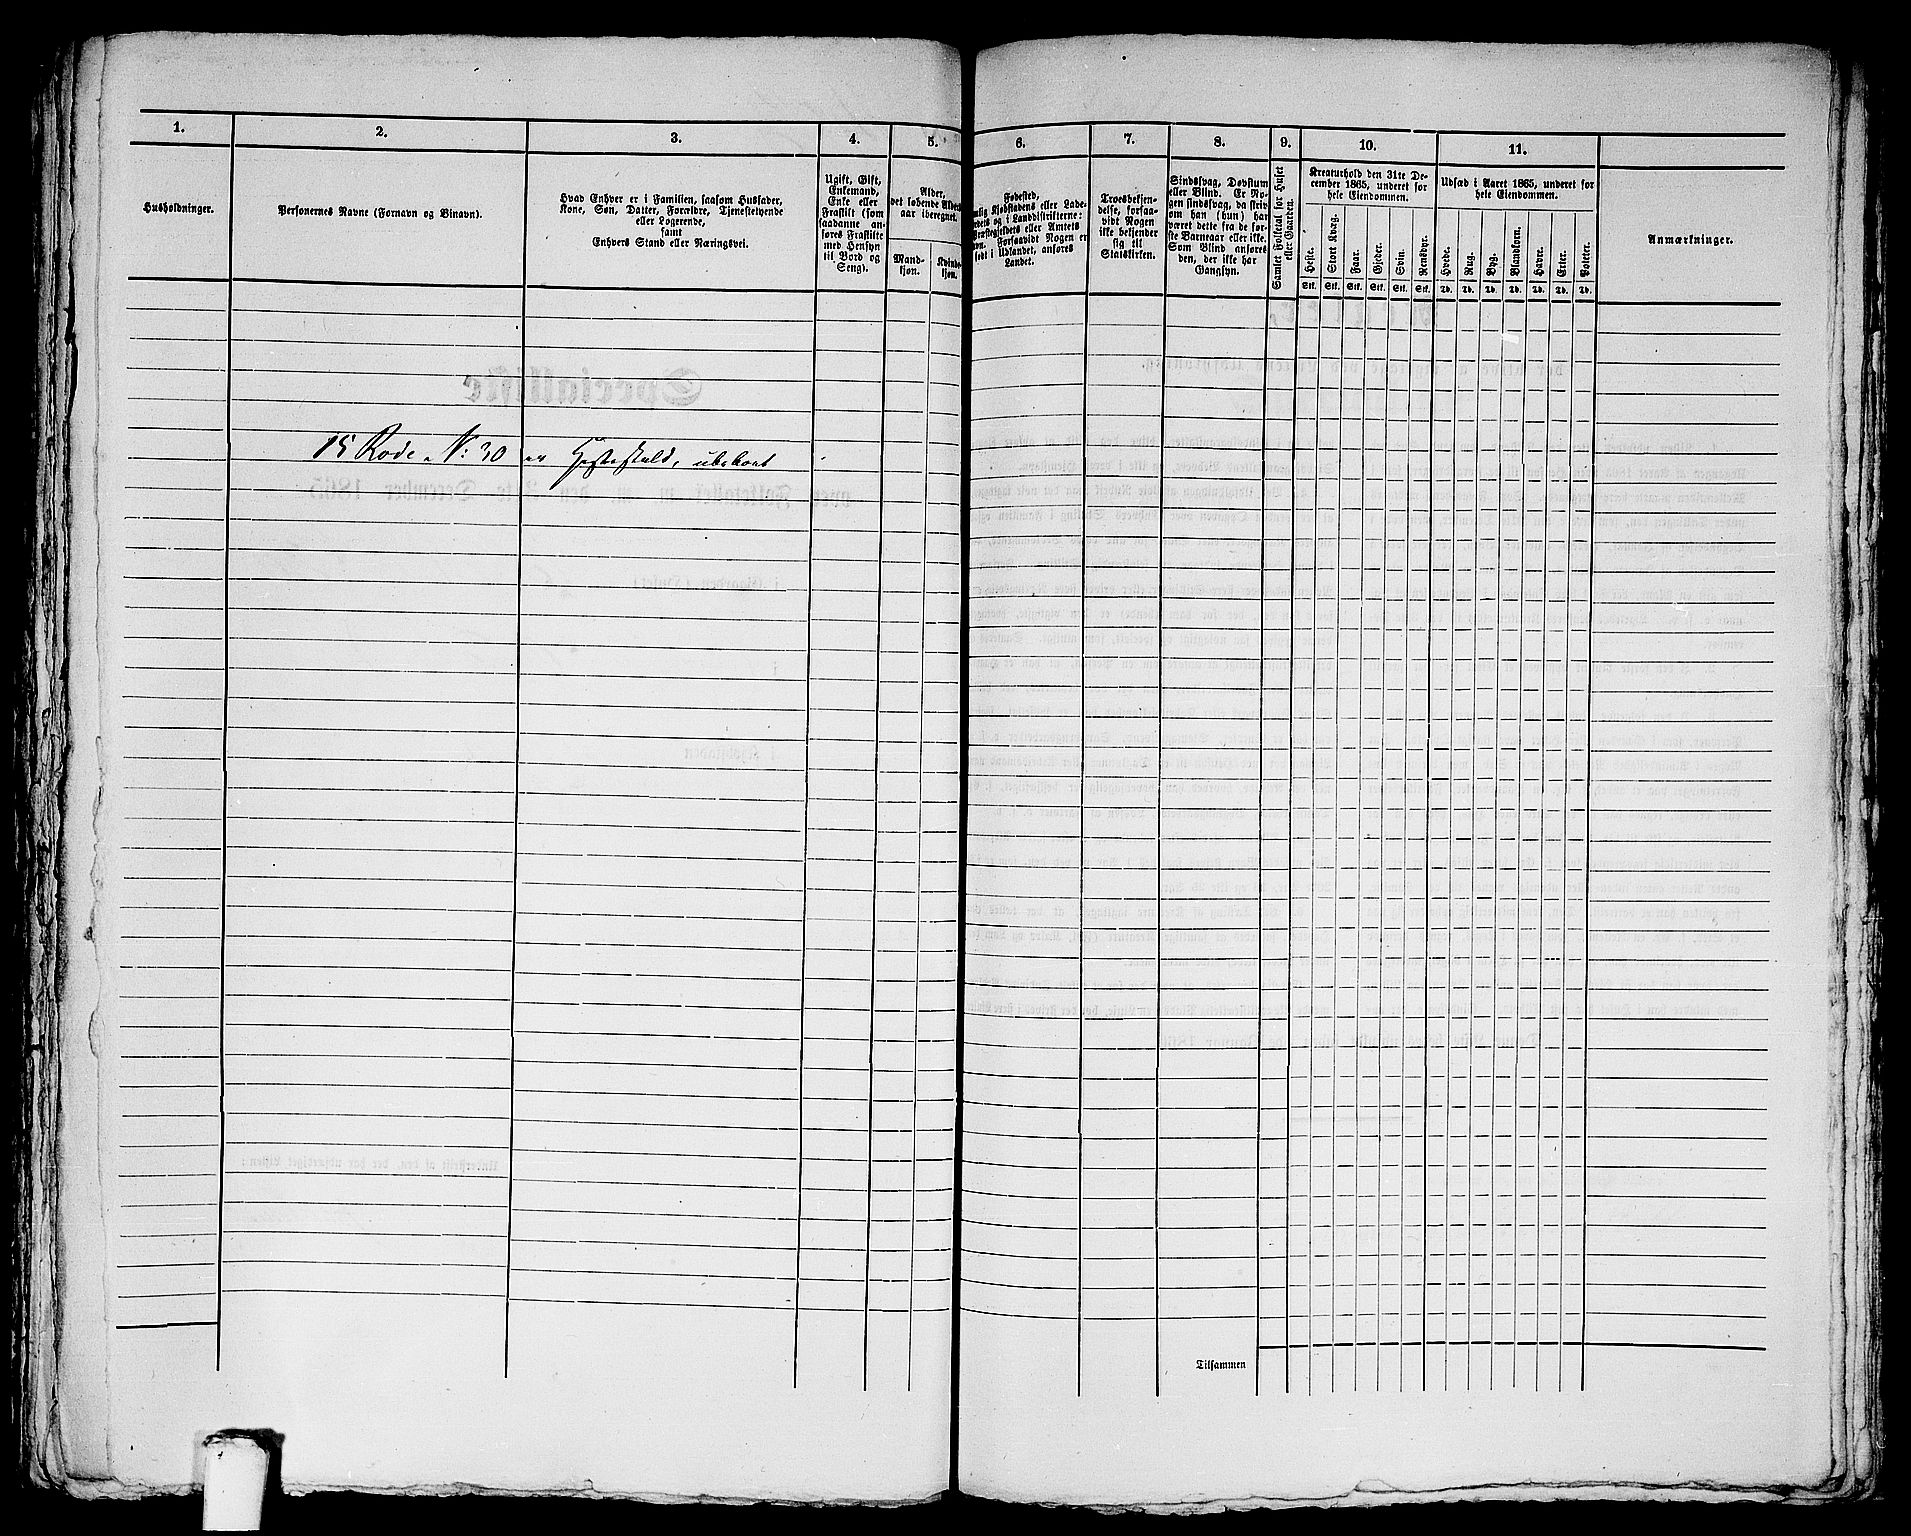 1.
2.
3.
4.
5.
6.
7.
8.
9.
10.
11.
Husholdninger.
Personernes Navne (Fornavn og Binavn).
Hvad Enhver er i Familien, saasom Husfader,
Kone, Søn, Datter, Forældre, Tjenestetyende
eller Logerende,
samt
Enhvers Stand eller Næringsvei.
Ugift, Gift,
Enkemand,
Enke eller
Fraskilt (som
saadanne an-
føres Fraskilte
med Hensyn
til Bord og
Seng).
Alder,
det løbende Alders-
aar iberegnet.
Mand-
kjøn.
Kvinde-
kjøn.
Fødested,
Kjøbstadens eller Lade-
stedets og i Landdistrikterne:
Præstegjeldets eller Amtets
Navn. Forsaavidt Nogen er
født i Udlandet, anføres
Landet.
Troesbekjen-
delse, forsaa-
vidt Nogen
ikke bekjender
sig til
Statskirken.
Sindssvag, Døvstum
eller Blind. Er No-
gen sindssvag, da skriv
om han (hun) har
været dette fra de før-
ste Barneaar eller ikke.
Som Blind anføres
den, der ikke har
Gangsyn.
Samlet Folketal for Huset
eller Gaarden.
Kreaturhold den 31te De-
cember 1865, underet for
hele Eiendommen.
Heste.
Stort Kvæg.
Faar.
Gjeder.
Svin.
Rensdyr.
Stk. Stk. Stk. Stk. Stk. Stk.
Udsæd i Aaret 1865, underet for
hele Eiendommen.
Hvede.
Rug.
Byg.
Blandkorn.
Havre.
Erter.
Poteter.
Td. Td. Td. Td. Td. Td. Td.
Anmærkninger.
15 Rode N: 30 er Hestestald, ubeboet
Tilsammen